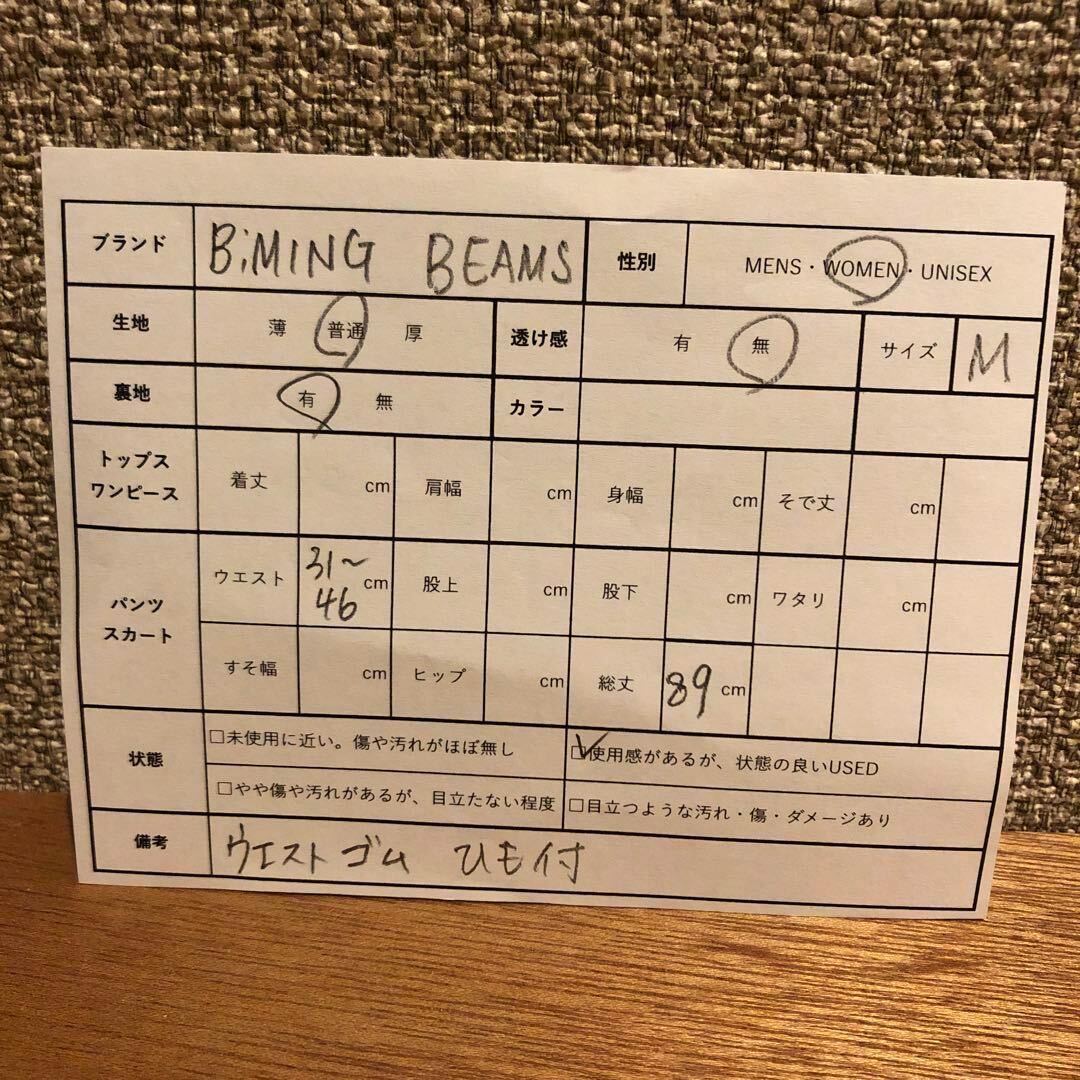 ブランド BiMING BEAMS 性別 MENS・WOMEN・UNISEX
生地 薄 普通 厚 透け感 有 無 サイズ M
裏地 有 無 カラー
トップス ワンピース 着丈 cm 肩幅 cm 身幅 cm そで丈 cm
パンツ スカート ウエスト 31〜46 cm 股上 cm 股下 cm ワタリ cm
すそ幅 cm ヒップ cm 総丈 89 cm
状態 □未使用に近い。傷や汚れがほぼ無し ☑使用感があるが、状態の良いUSED
□やや傷や汚れがあるが、目立たない程度 □目立つような汚れ・傷・ダメージあり
備考 ウエストゴム ひも付